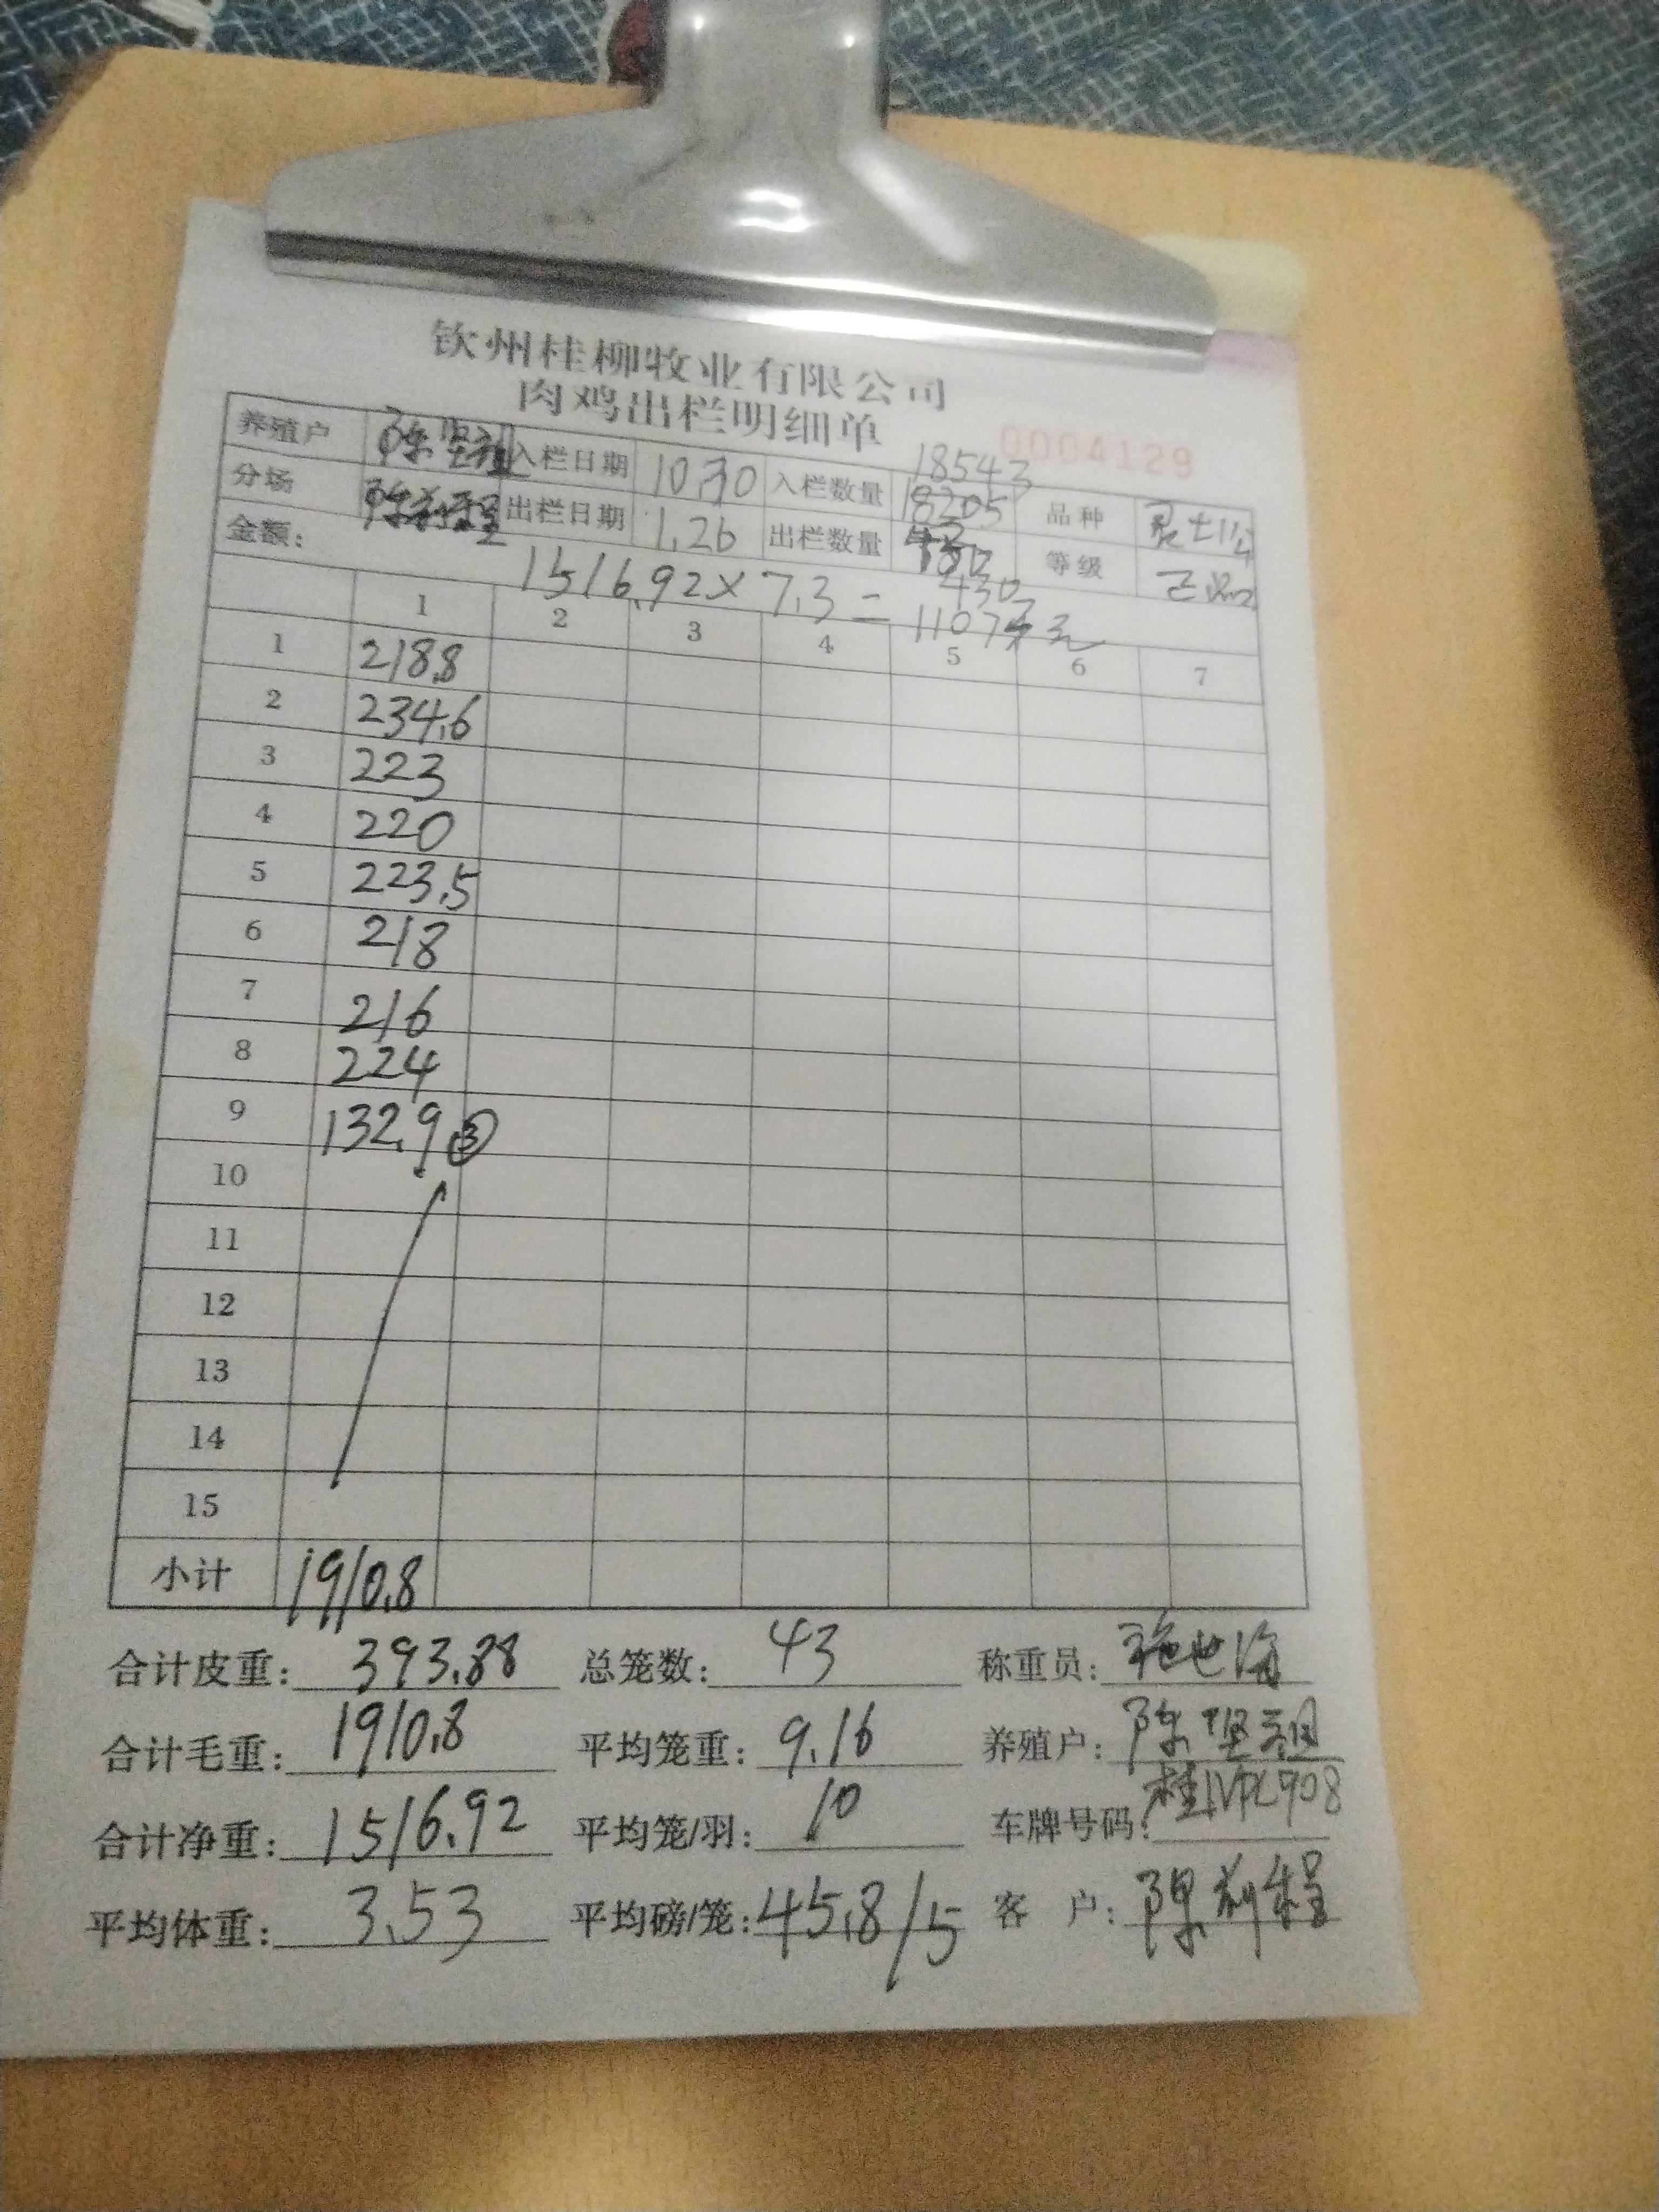 钦州桂柳牧业有限公司
肉鸡出栏明细单
0004129
养殖户 陈坚祖 入栏日期 10.30 入栏数量 18543 18205 品种 灵土
分场 出栏日期 1.26 出栏数量 430 等级
金额: 1516.92×7.3=11073元
1 2 3 4 5 6 7
1 218.8
2 234.6
3 223
4 220
5 223.5
6 218
7 216
8 224
9 132.9 ③
10
11
12
13
14
15
小计 1910.8
合计皮重: 393.88 总笼数: 43 称重员:
合计毛重: 1910.8 平均笼重: 9.16 养殖户: 陈坚祖
合计净重: 1516.92 平均笼/羽: 10 车牌号码:
平均体重: 3.53 平均磅/笼: 45.8/5 客 户: